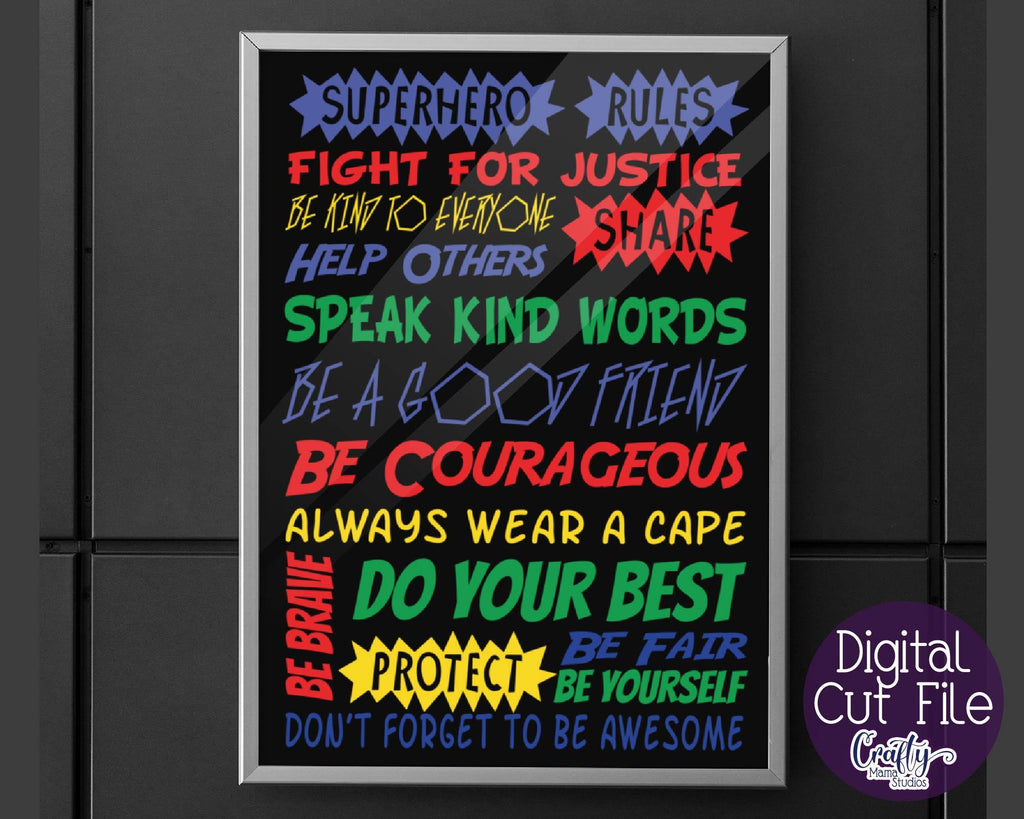 SUPERHERO RULES
FIGHT FOR JUSTICE
BE KIND TO EVERYONE
SHARE
HELP OTHERS
SPEAK KIND WORDS
BE A GOOD FRIEND
BE COURAGEOUS
ALWAYS WEAR A CAPE
BE BRAVE
DO YOUR BEST
PROTECT
BE FAIR
BE YOURSELF
DON'T FORGET TO BE AWESOME
Digital
Cut File
Crafty
Mama
Studios